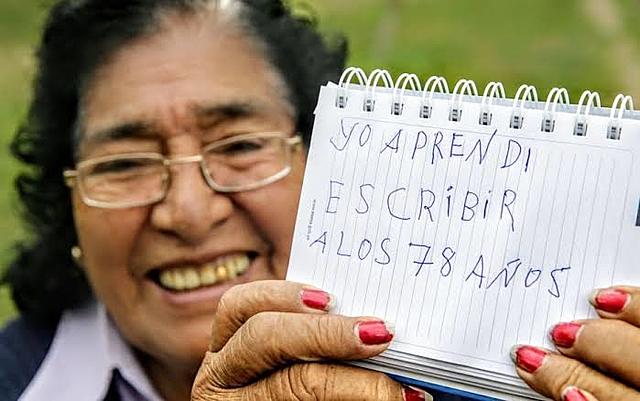 YO APRENDI
ESCRiBiR
A LOS 78 AÑOS